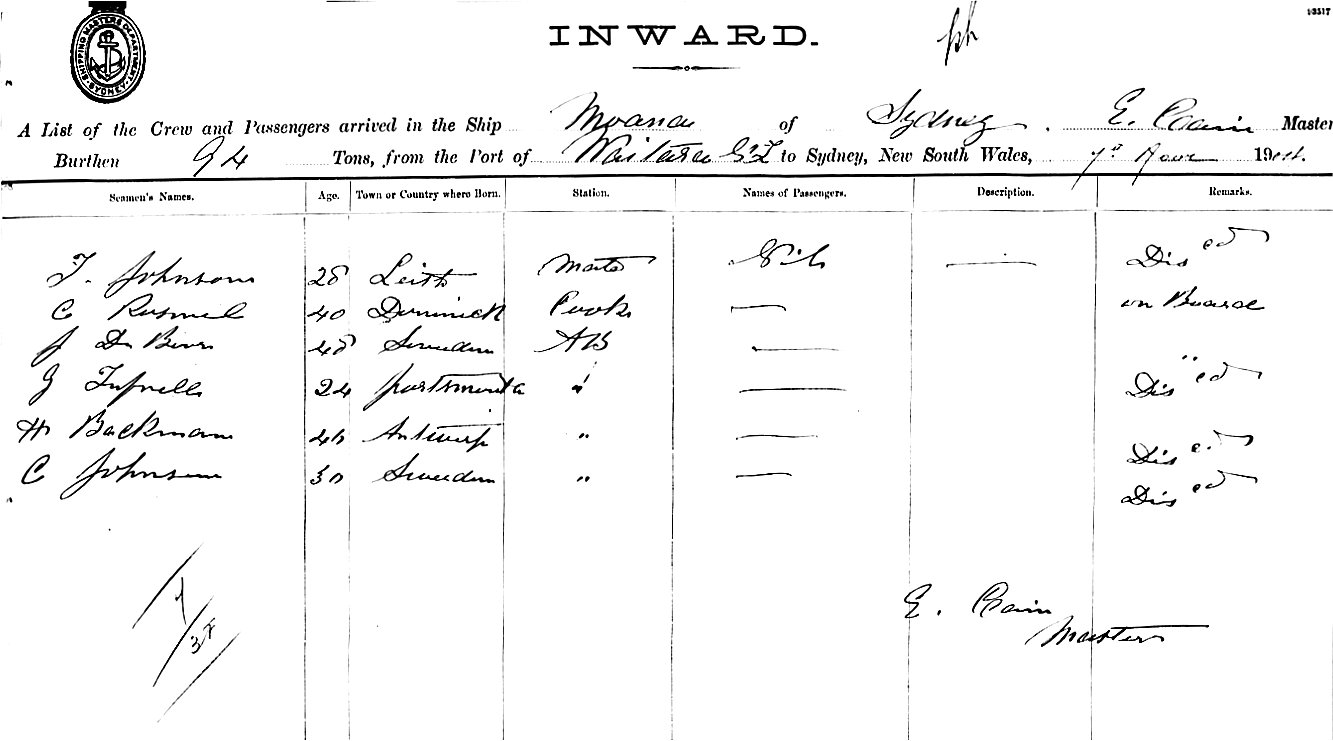 SHIPPING MASTERS DEPARTMENT SYDNEY
INWARD.
A List of the Crew and Passengers arrived in the Ship Moana of Sydney. E. Cain Master
Burthen 94 Tons, from the Port of to Sydney, New South Wales, 19
Seamen's Names. Age. Town or Country where Born. Station. Names of Passengers. Description. Remarks.
T. Johnson 28 Leith Mate Nil — Disced
C 40 Dominick Cook — on Board
J De Beer 48 Sweden AB — "
G Tufnell 24 portsmouth " — Disced
H Backman 46 Antwerp " — Disced
C Johnson 30 Sweden " — Disced
E. Cain
Master